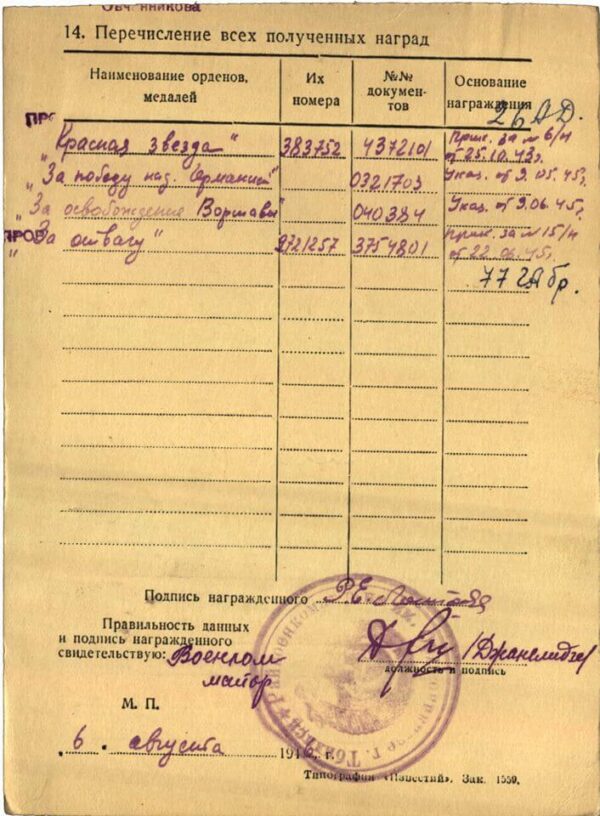 Овчинникова
14. Перечисление всех полученных наград
Наименование орденов, медалей
Их номера
№№ документов
Основание награждения
26 А Д.
"Красная звезда" 383752 4372101 Прик. за № 6/н от 25.10.43г.
"За победу над Германией" 0321703 Указ. от 9.05.45г.
"За освобождение Варшавы" 040384 Указ. от 9.06.45г.
"За отвагу" 2721257 3754801 Прик. за № 15/н от 22.06.45г.
Подпись награжденного
Правильность данных
и подпись награжденного
свидетельствую: Военком
майор
должность и подпись
М. П.
"6. августа 1946. г.
Типография «Известий». Зак. 1559.